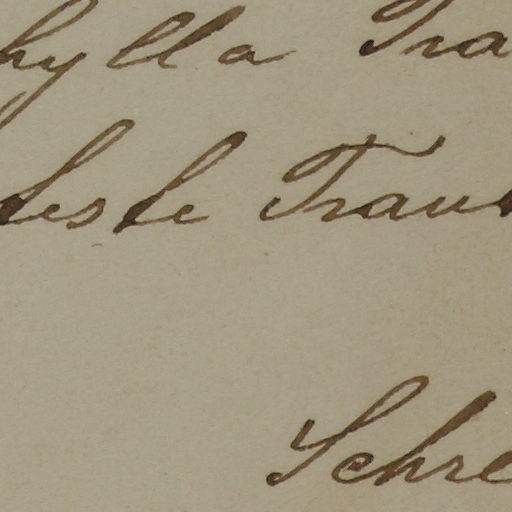 hylla Tra
leste Traut
Schre